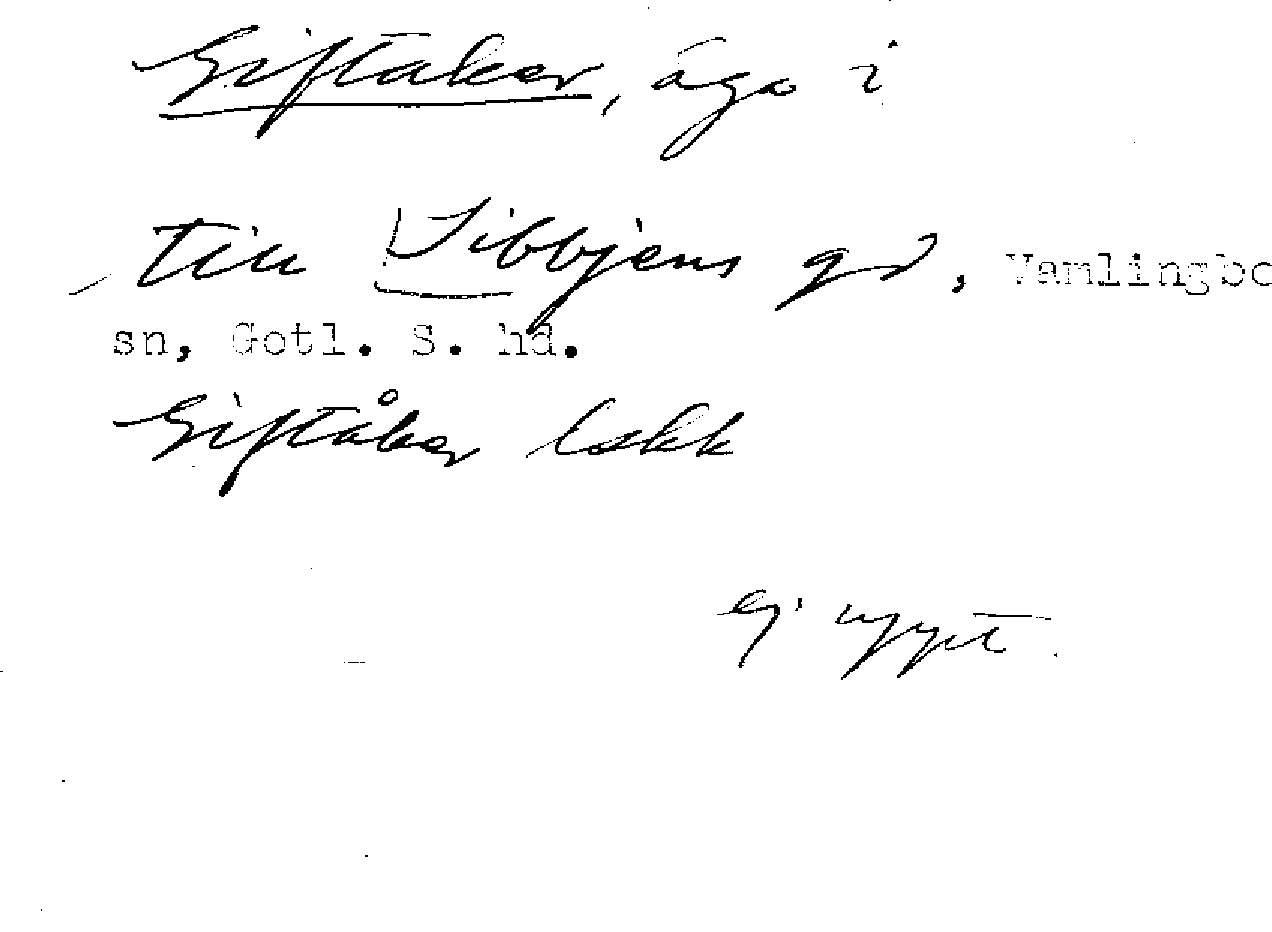 Giftaker, ägo i
till Sibbjens gd, Vamlingbo
sn, Gotl. S. hd.
Giftåker Lskk
ej uppt.